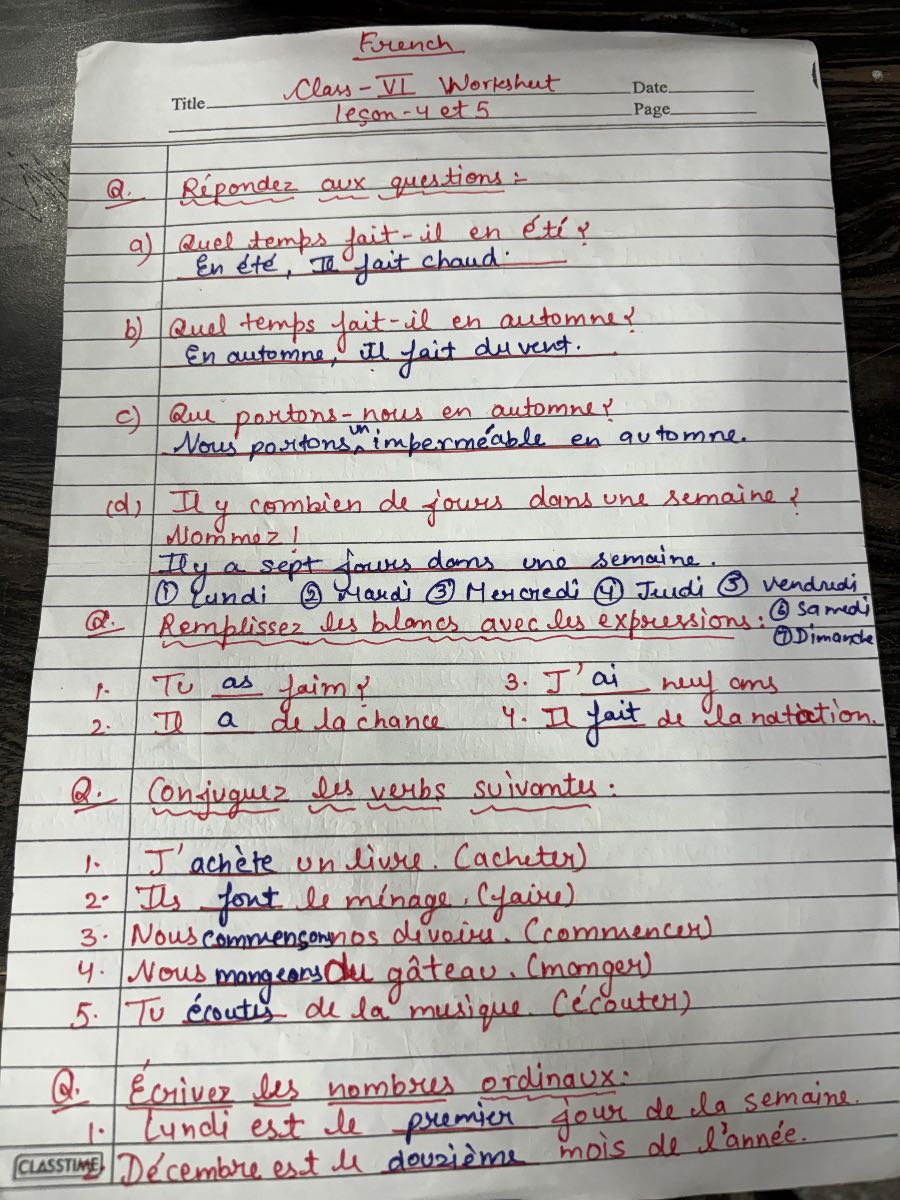 French
Title Class-VI Worksheet Date
leçon-4 et 5 Page
Q. Répondez aux questions :-
a) Quel temps fait-il en été ?
En été, Il fait chaud.
b) Quel temps fait-il en automne ?
En automne, Il fait du vent.
c) Que portons-nous en automne ?
Nous portons un imperméable en automne.
(d) Il y combien de jours dans une semaine ?
Nommez !
Il y a sept jours dans une semaine.
① Lundi ② Mardi ③ Mercredi ④ Jeudi ⑤ Vendredi
⑥ Samedi
⑦ Dimanche
Q. Remplissez les blancs avec les expressions :
1. Tu as faim ? 3. J'ai neuf ans
2. Il a de la chance 4. Il fait de la natation.
Q. Conjuguez les verbs suivantes :
1. J'achète un livre. (acheter)
2. Ils font le ménage. (faire)
3. Nous commençons nos devoirs. (commencer)
4. Nous mangeons du gâteau. (manger)
5. Tu écoutes de la musique. (écouter)
Q. Écrivez les nombres ordinaux :
1. Lundi est le premier jour de la semaine.
2. Décembre est le douzième mois de l'année.
CLASSTIME